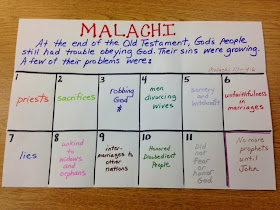 MALACHI
At the end of the Old Testament, God's People
still had trouble obeying God. Their sins were growing.
A few of their problems were:
Malachi
1
priests
2
sacrifices
3
robbing
God
4
men
divorcing
wives
5
sorcery
and
witchcraft
6
unfaithfulness
in
marriages
7
lies
8
unkind
to
widows
and
orphans
9
inter-
marriages to
other
nations
10
Honored
Disobedient
People
11
Did
not
fear
or
honor
God
No more
prophets
until
John